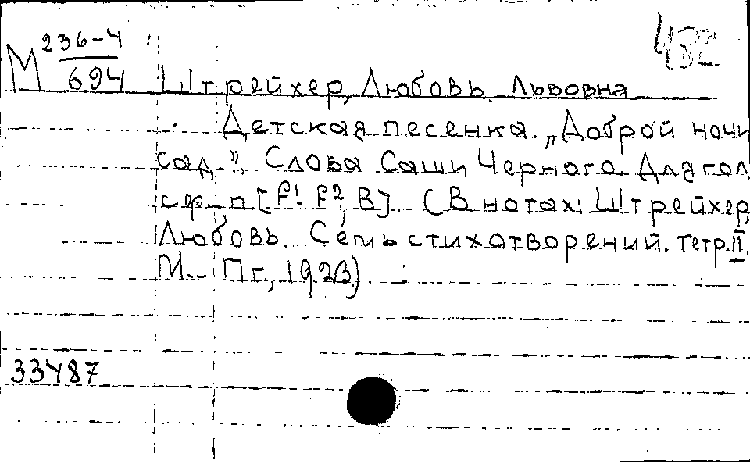 М 236-4
694
432
Штрейхер, Любовь Львовна
Детская песенка. „Доброй ночи
сад". Слова Саши Черного. Для гол.
с ф-п [f¹-f², B]. (В нотах: Штрейхер,
Любовь. Семь стихотворений. Тетр. II.
М.-Пг, 1923)
33487